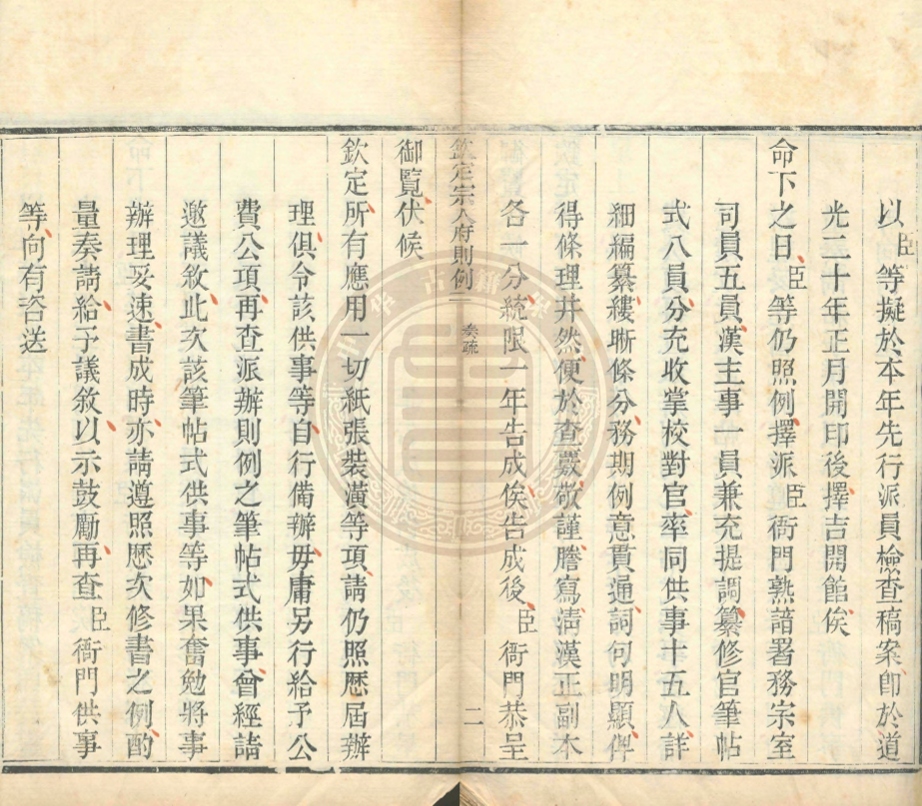 以臣等擬於本年先行派員檢查稿案卽於道
光二十年正月開印後擇吉開館俟
命下之日臣等仍照例擇派臣衙門熟諳署務宗室
司員五員漢主事一員兼充提調纂修官筆帖
式八員分充收掌校對官率同供事十五人詳
細編纂縷晰條分務期例意貫通詞句明顯俾
得條理井然便於查覈敬謹謄寫淸漢正副本
各一分統限一年告成俟告成後臣衙門恭呈
欽定宗人府則例 奏疏 二
御覽伏候
欽定所有應用一切紙張裝潢等項請仍照歷屆辦
理俱令該供事等自行備辦毋庸另行給予公
費公項再查派辦則例之筆帖式供事曾經請
邀議敘此次該筆帖式供事等如果奮勉將事
辦理妥速書成時亦請遵照歷次修書之例酌
量奏請給予議敘以示鼓勵再查臣衙門供事
等向有咨送